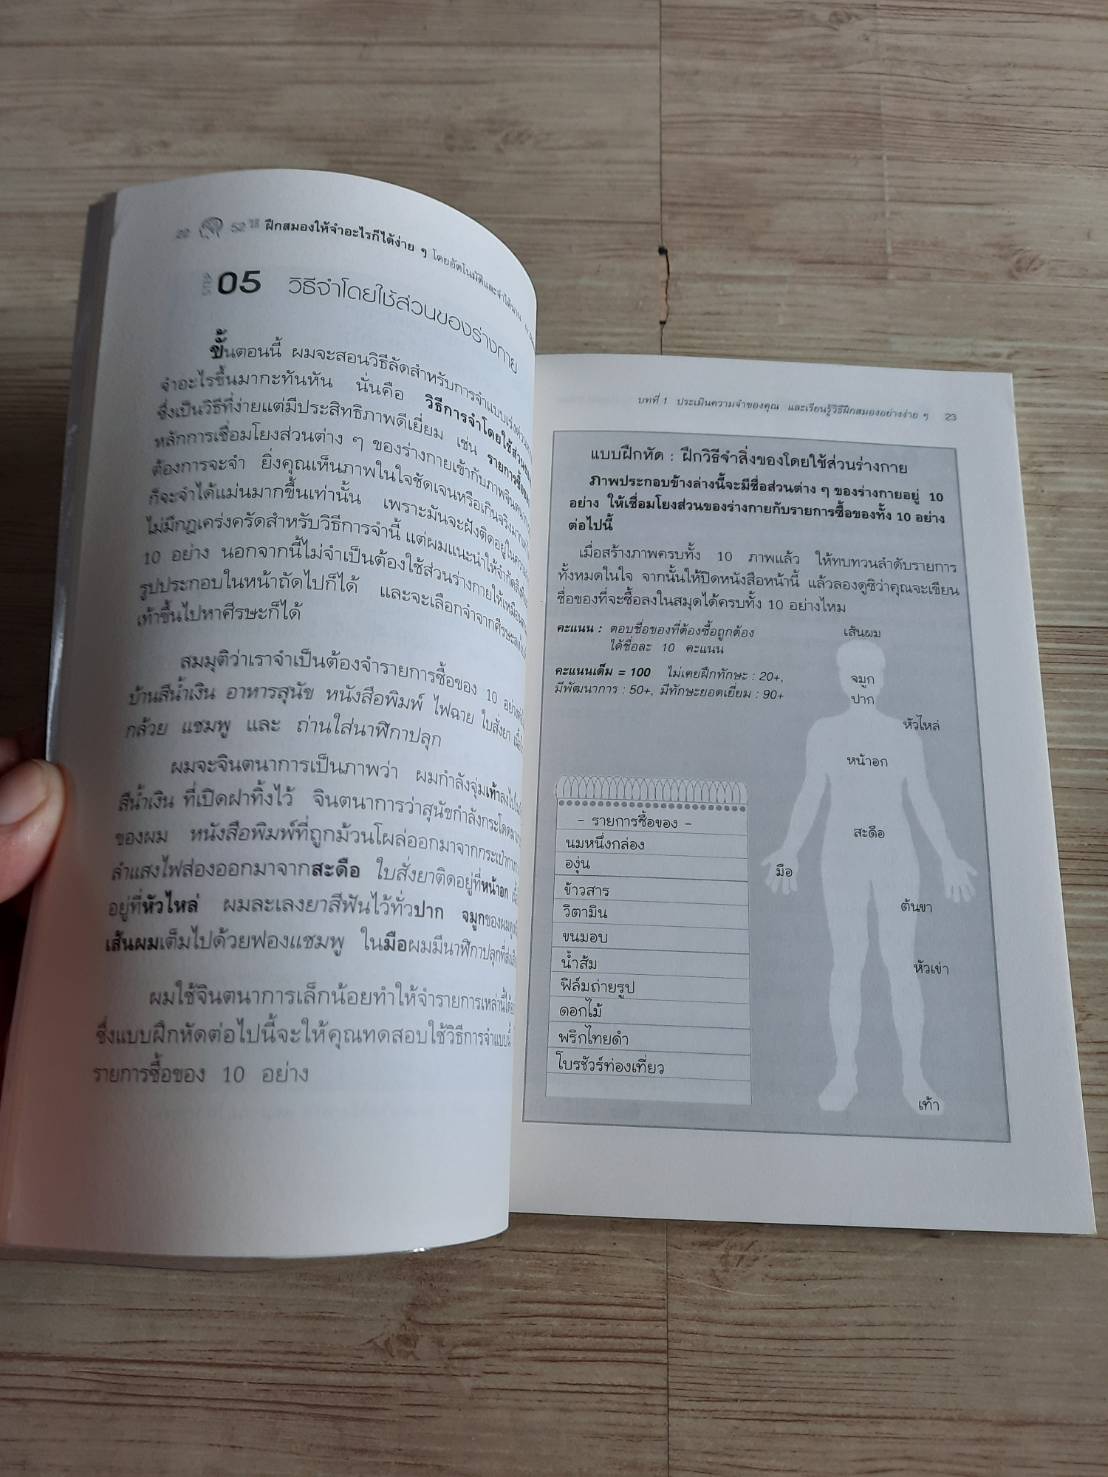 22 52 วิธี ฝึกสมองให้จำอะไรก็ได้ง่าย ๆ โดยอัตโนมัติและจำได้นาน
STEP 05 วิธีจำโดยใช้ส่วนของร่างกาย
ขั้นตอนนี้ ผมจะสอนวิธีลัดสำหรับการจำแบบเร่งด่วน
จำอะไรขึ้นมากะทันหัน นั่นคือ วิธีการจำโดยใช้ส่วน
ซึ่งเป็นวิธีที่ง่ายแต่มีประสิทธิภาพดีเยี่ยม เช่น รายการซื้อของ
หลักการเชื่อมโยงส่วนต่าง ๆ ของร่างกายเข้ากับภาพ
ต้องการจะจำ ยิ่งคุณเห็นภาพในใจชัดเจนหรือเกินจริงมาก
ก็จะจำได้แม่นมากขึ้นเท่านั้น เพราะมันจะฝังติดอยู่ใน
ไม่มีกฎเคร่งครัดสำหรับวิธีการจำนี้ แต่ผมแนะนำให้จำ
10 อย่าง นอกจากนี้ไม่จำเป็นต้องใช้ส่วนร่างกายให้เหมือน
รูปประกอบในหน้าถัดไปก็ได้ และจะเลือกจำจากศีรษะ
เท้าขึ้นไปหาศีรษะก็ได้
สมมุติว่าเราจำเป็นต้องจำรายการซื้อของ 10 อย่าง
บ้านสีน้ำเงิน อาหารสุนัข หนังสือพิมพ์ ไฟฉาย ใบสั่งยา
กล้วย แชมพู และ ถ่านใส่นาฬิกาปลุก
ผมจะจินตนาการเป็นภาพว่า ผมกำลังจุ่มเท้าลงไป
สีน้ำเงิน ที่เปิดฝาทิ้งไว้ จินตนาการว่าสุนัขกำลังกระโดด
ของผม หนังสือพิมพ์ที่ถูกม้วนโผล่ออกมาจากกระเป๋า
ลำแสงไฟส่องออกมาจากสะดือ ใบสั่งยาติดอยู่ที่หน้าอก
อยู่ที่หัวไหล่ ผมละเลงยาสีฟันไว้ทั่วปาก จมูกของผม
เส้นผมเต็มไปด้วยฟองแชมพู ในมือผมมีนาฬิกาปลุกที่
ผมใช้จินตนาการเล็กน้อยทำให้จำรายการเหล่านี้ได้
ซึ่งแบบฝึกหัดต่อไปนี้จะให้คุณทดสอบใช้วิธีการจำแบบนี้
รายการซื้อของ 10 อย่าง
บทที่ 1 ประเมินความจำของคุณ และเรียนรู้วิธีฝึกสมองอย่างง่าย ๆ 23
แบบฝึกหัด : ฝึกวิธีจำสิ่งของโดยใช้ส่วนร่างกาย
ภาพประกอบข้างล่างนี้จะมีชื่อส่วนต่าง ๆ ของร่างกายอยู่ 10
อย่าง ให้เชื่อมโยงส่วนของร่างกายกับรายการซื้อของทั้ง 10 อย่าง
ต่อไปนี้
เมื่อสร้างภาพครบทั้ง 10 ภาพแล้ว ให้ทบทวนลำดับรายการ
ทั้งหมดในใจ จากนั้นให้ปิดหนังสือหน้านี้ แล้วลองดูซิว่าคุณจะเขียน
ชื่อของที่จะซื้อลงในสมุดได้ครบทั้ง 10 อย่างไหม
คะแนน : ตอบชื่อของที่ต้องซื้อถูกต้อง
ได้ชื่อละ 10 คะแนน
คะแนนเต็ม = 100 ไม่เคยฝึกทักษะ : 20+,
มีพัฒนาการ : 50+, มีทักษะยอดเยี่ยม : 90+
เส้นผม
จมูก
ปาก
หัวไหล่
หน้าอก
สะดือ
มือ
ต้นขา
หัวเข่า
เท้า
- รายการซื้อของ -
นมหนึ่งกล่อง
องุ่น
ข้าวสาร
วิตามิน
ขนมอบ
น้ำส้ม
ฟิล์มถ่ายรูป
ดอกไม้
พริกไทยดำ
โบรชัวร์ท่องเที่ยว